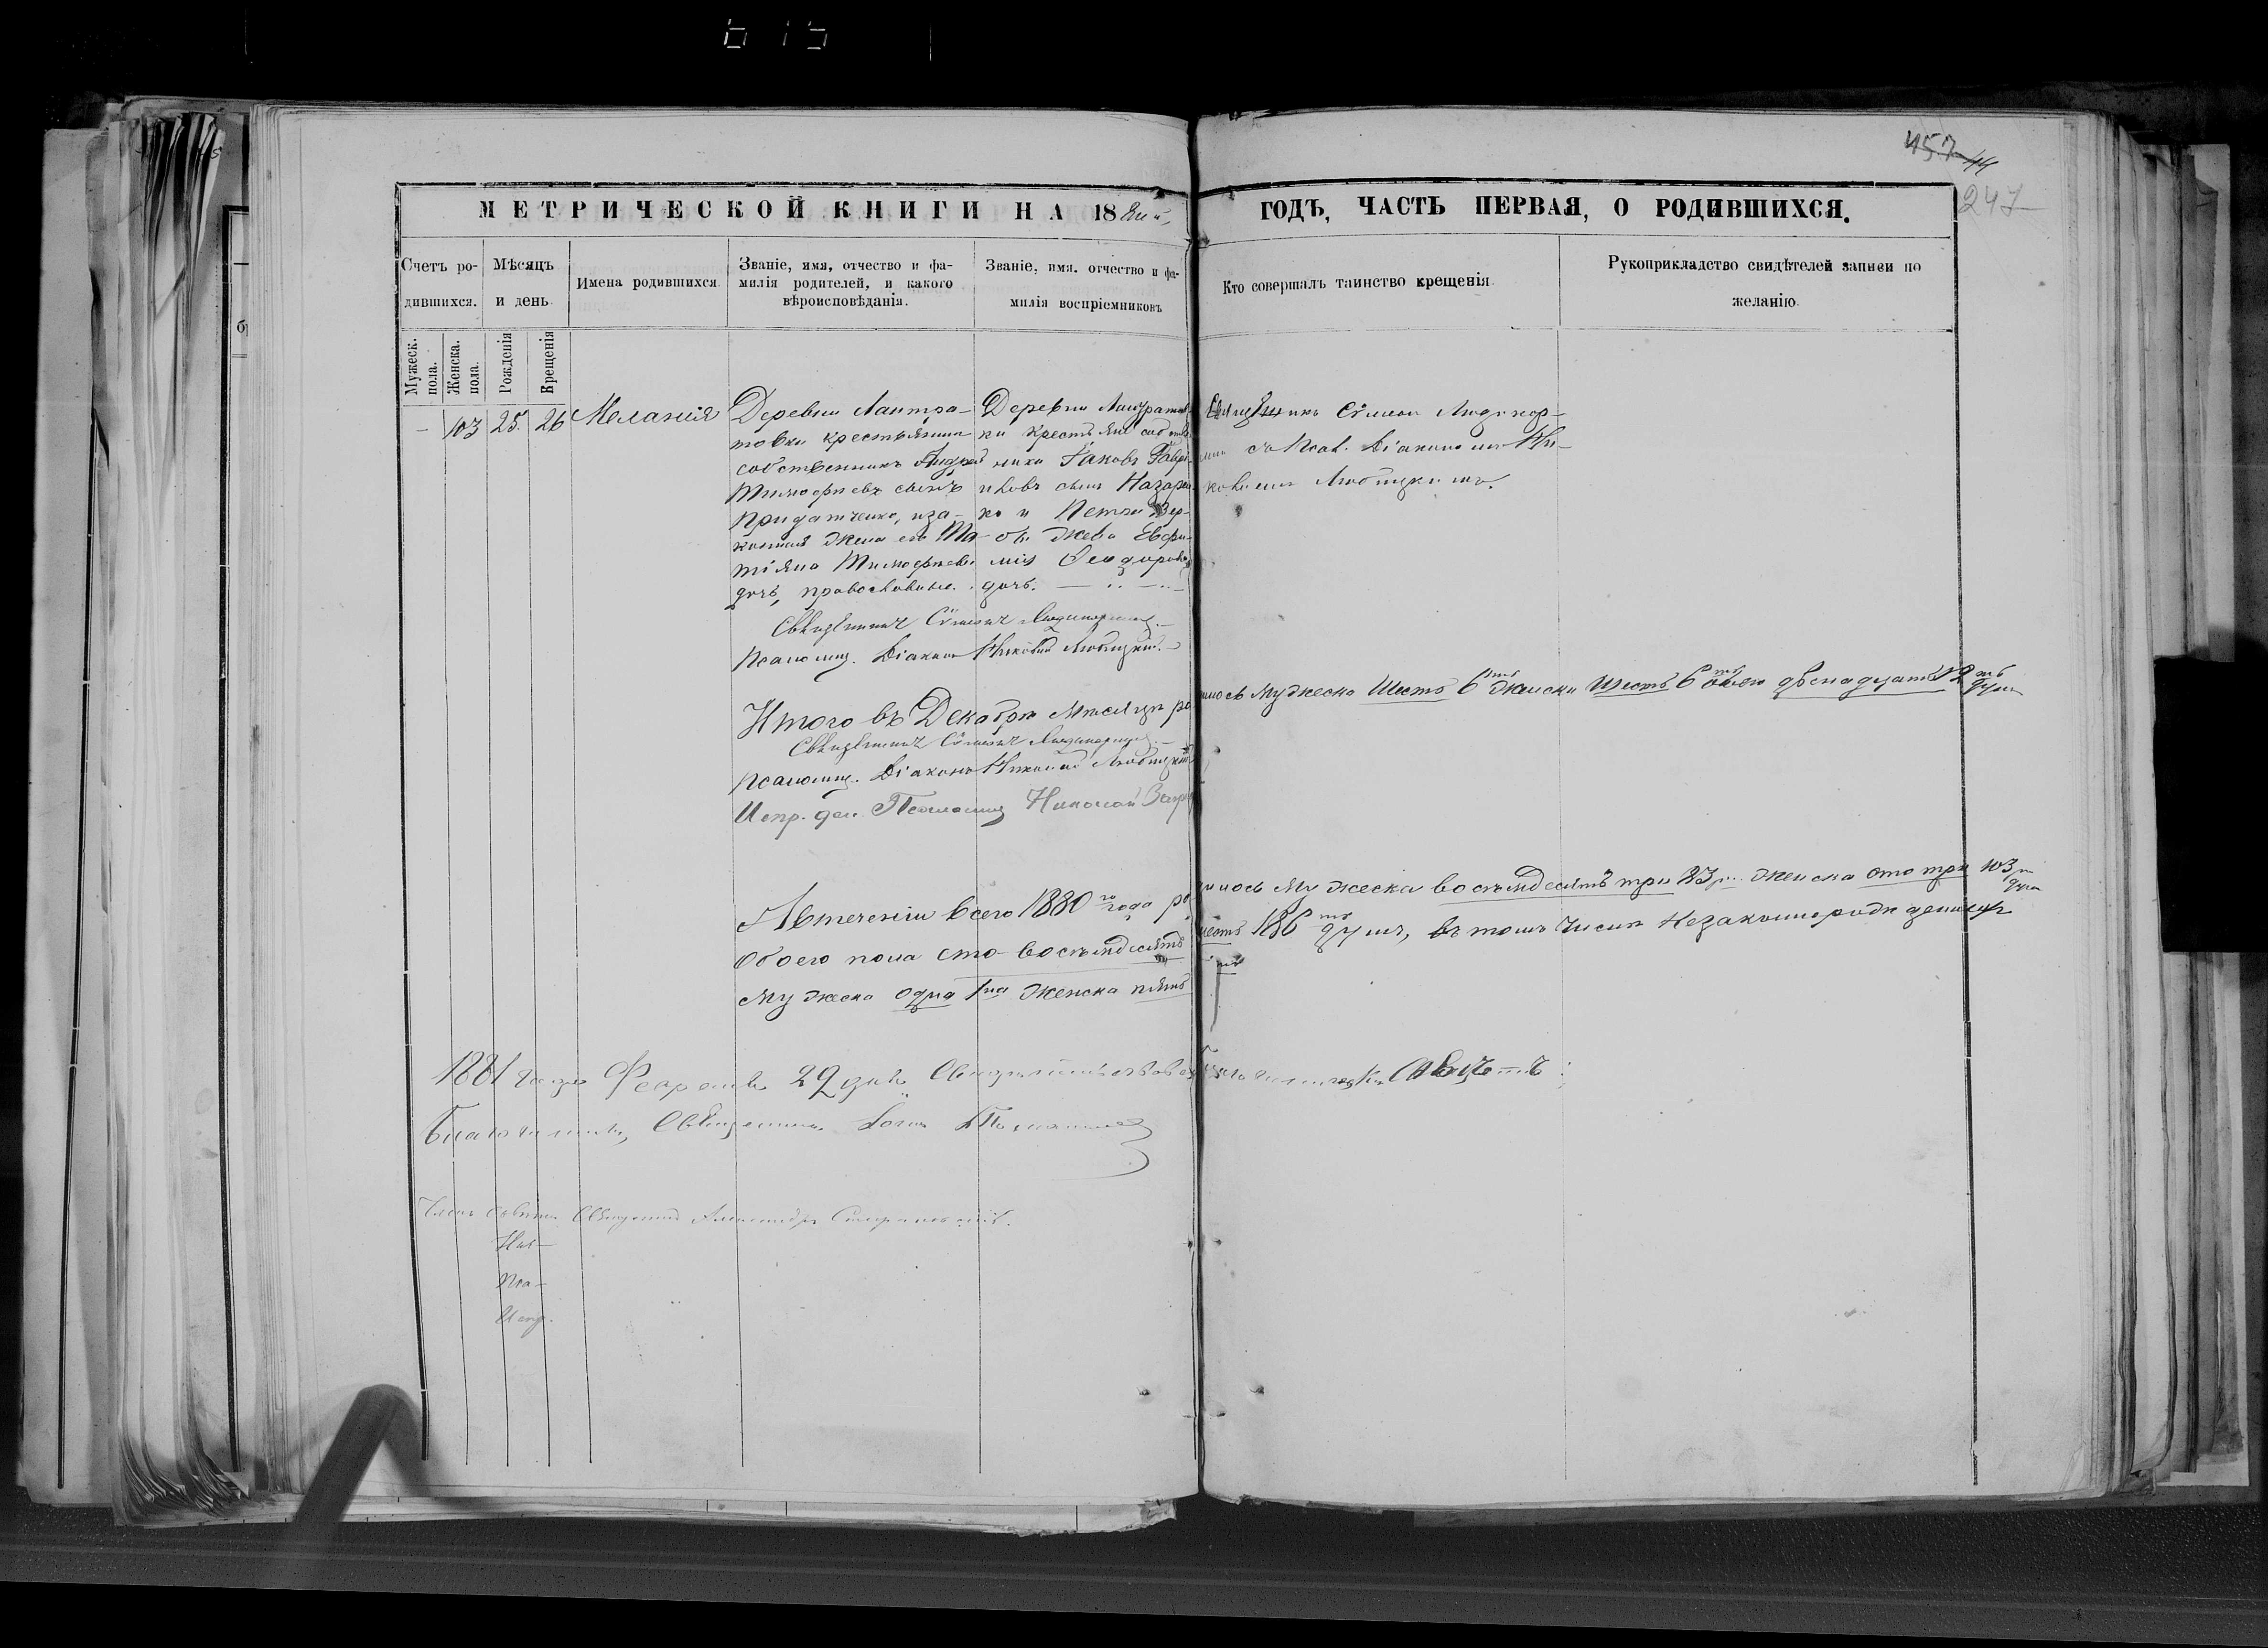 457 44
247
МЕТРИЧЕСКОЙ КНИГИ НА 18 ГОДЪ, ЧАСТЬ ПЕРВАЯ, О РОДИВШИХСЯ.
Счетъ родившихся.
Мѣсяцъ и день.
Имена родившихся.
Званіе, имя, отчество и фа-
милія родителей, и какого
вѣроисповѣданія.
Званіе, имя. отчество и фа-
милія воспріемниковъ
Кто совершалъ таинство крещенія.
Рукоприкладство свидѣтелей записи по
желанію.
Мужеск. пола.
Женска. пола.
Рожденія
Крещенія
— 103 25. 26 Меланія
Деревни Лантра-
товки крестьянин
собственникъ Андрей
Тимофѣевъ сынъ
Придатченко, иза-
конная жена его Та-
тіяна Тимофѣева
дочь, православные.
Деревни
ки крестьяне
ники Іаковъ Гаври-
иловъ сынъ Назарен-
ко и
дѣва Евфи-
мія Ѳеодорова
дочь.
Священникъ Сѵмеон
съ Псал. Діакономъ Ни-
колаемъ Любицкимъ.
Священникъ Сѵмеонъ
Псаломщ. Діаконъ Николай Любицкій.
Итого въ Декабрѣ мѣсяцѣ родилось мужеска шесть 6ть женска шесть 6ть обоего двенадцать 12ть душъ
Священникъ Сѵмеонъ
Псаломщ. Діаконъ Николай Любицкій
Испр. дол. Псаломщ Николай
Втеченіи всего 1880го года родилось мужеска восемьдесятъ три 83 женска сто три 103 душ
обоего пола сто восемьдесятъ шесть 186ть душъ, въ томъ числѣ незаконнорожденныхъ
мужеска одна 1на женска пять
1881 года Февраля 29 дня
Благочинный, Священникъ
Членъ совѣта Священникъ Александръ
Ник-
Пса-
Испр.